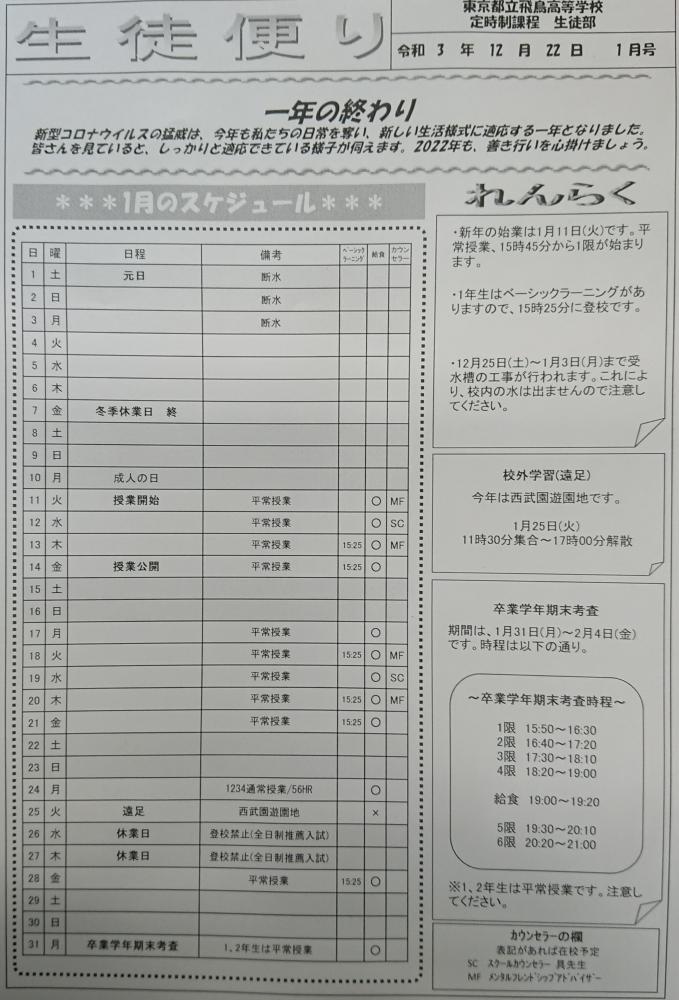 生徒便り
東京都立飛鳥高等学校
定時制課程 生徒部
令和 3 年 12 月 22 日 1 月号
一年の終わり
新型コロナウイルスの猛威は、今年も私たちの日常を奪い、新しい生活様式に適応する一年となりました。
皆さんを見ていると、しっかりと適応できている様子が伺えます。2022年も、善き行いを心掛けましょう。
***1月のスケジュール***
日 曜 日程 備考 ベーシックラーニング 給食 カウンセラー
1 土 元日 断水
2 日 断水
3 月 断水
4 火
5 水
6 木
7 金 冬季休業日 終
8 土
9 日
10 月 成人の日
11 火 授業開始 平常授業 ○ MF
12 水 平常授業 ○ SC
13 木 平常授業 15:25 ○ MF
14 金 授業公開 平常授業 15:25 ○
15 土
16 日
17 月 平常授業 ○
18 火 平常授業 15:25 ○ MF
19 水 平常授業 ○ SC
20 木 平常授業 15:25 ○ MF
21 金 平常授業 15:25 ○
22 土
23 日
24 月 1234通常授業/56HR ○
25 火 遠足 西武園遊園地 ×
26 水 休業日 登校禁止(全日制推薦入試)
27 木 休業日 登校禁止(全日制推薦入試)
28 金 平常授業 15:25 ○
29 土
30 日
31 月 卒業学年期末考査 1、2年生は平常授業 ○
れんらく
・新年の始業は1月11日(火)です。平
常授業、15時45分から1限が始まり
ます。
・1年生はベーシックラーニングがあ
りますので、15時25分に登校です。
・12月25日(土)～1月3日(月)まで受
水槽の工事が行われます。これによ
り、校内の水は出ませんので注意し
てください。
校外学習(遠足)
今年は西武園遊園地です。
1月25日(火)
11時30分集合～17時00分解散
卒業学年期末考査
期間は、1月31日(月)～2月4日(金)
です。時程は以下の通り。
～卒業学年期末考査時程～
1限 15:50～16:30
2限 16:40～17:20
3限 17:30～18:10
4限 18:20～19:00
給食 19:00～19:20
5限 19:30～20:10
6限 20:20～21:00
※1、2年生は平常授業です。注意し
てください。
カウンセラーの欄
表記があれば在校予定
SC スクールカウンセラー 具先生
MF メンタルフレンドシップアドバイザー